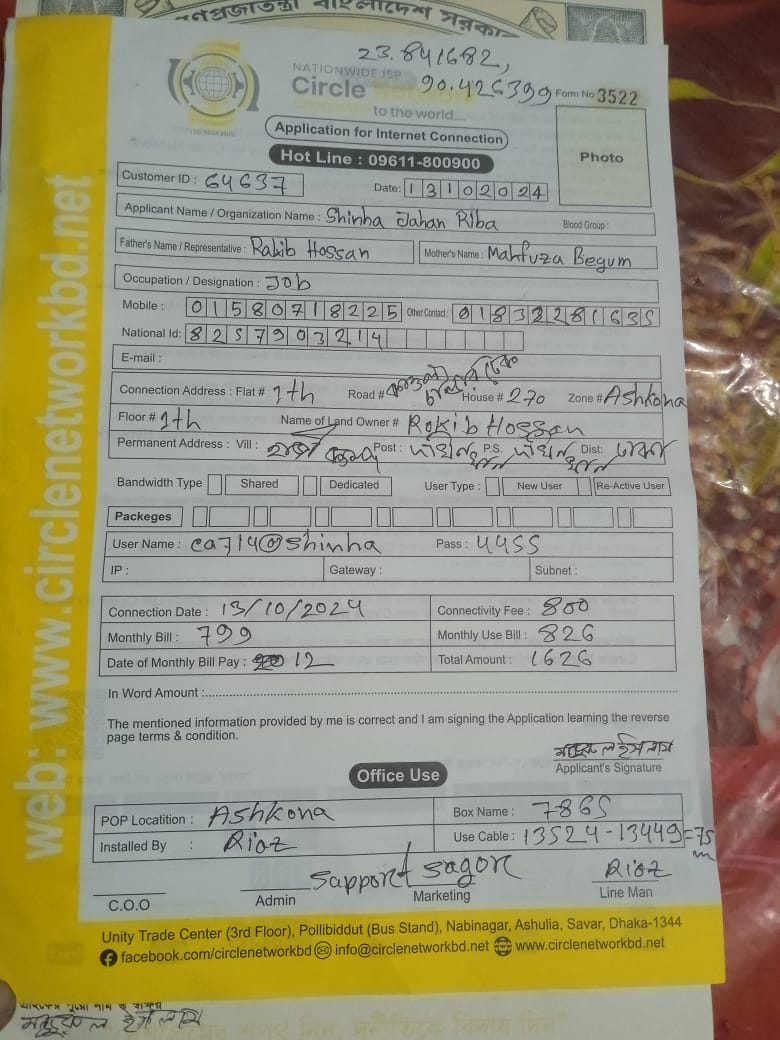 গণপ্রজাতন্ত্রী বাংলাদেশ সরকার
23.841682,
90.426399
NATIONWIDE ISP
Circle Network
to the world....
Form No 3522
Application for Internet Connection
Hot Line : 09611-800900
Photo
Customer ID : 64637 Date: 13102024
Applicant Name / Organization Name : Shinha Jahan Riba Blood Group :
Father's Name / Representative : Rakib Hossan Mother's Name : Mahfuza Begum
Occupation / Designation : Job
Mobile : 01580718225 Other Contact : 01832281635
National Id: 8257903214
E-mail :
Connection Address : Flat # 1th Road # House # 270 Zone # Ashkona
Floor # 1th Name of Land Owner # Rokib Hossan
Permanent Address : Vill : Post : P.S. Dist: ঢাকা
Bandwidth Type Shared Dedicated User Type : New User Re-Active User
Packeges
User Name : ca714@shinha Pass : 4455
IP : Gateway : Subnet :
Connection Date : 13/10/2024 Connectivity Fee : 800
Monthly Bill : 799 Monthly Use Bill : 826
Date of Monthly Bill Pay : 12 Total Amount : 1626
In Word Amount :
The mentioned information provided by me is correct and I am signing the Application learning the reverse
page terms & condition.
Applicant's Signature
Office Use
POP Locatition : Ashkona Box Name : 7865
Installed By : Riaz Use Cable : 13524-13449=75
m
Support Sagor Riaz
C.O.O Admin Marketing Line Man
Unity Trade Center (3rd Floor), Pollibiddut (Bus Stand), Nabinagar, Ashulia, Savar, Dhaka-1344
facebook.com/circlenetworkbd info@circlenetworkbd.net www.circlenetworkbd.net
web: www.circlenetworkbd.net